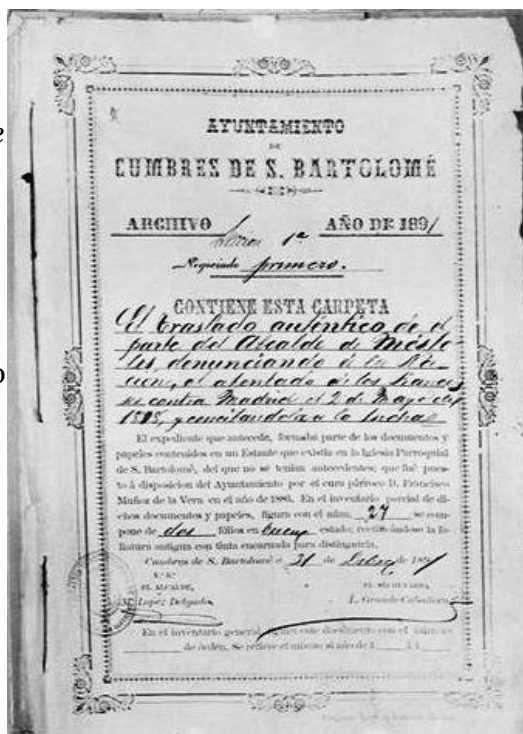 AYUNTAMIENTO
DE
CUMBRES DE S. BARTOLOMÉ
ARCHIVO AÑO DE 1891
1ª
Negociado primero.
CONTIENE ESTA CARPETA
El traslado auténtico de el
parte del Alcalde de Mósto
les, denunciando á la Na
cion, el atentado de los france
ses contra Madrid el 2 de Mayo de
1808, y concitandola a la lucha
El expediente que antecede, formaba parte de los documentos y
papeles contenidos en un Estante que existía en la Iglesia Parroquial
de S. Bartolomé, del que no se tenían antecedentes; que fué pues-
to á disposicion del Ayuntamiento por el cura párroco D. Francisco
Muñoz de la Vera en el año de 1886. En el inventario parcial de di-
chos documentos y papeles, figura con el núm. 27 se com-
pone de dos fólios en buen estado; rectificándose la fo-
liatura antigua con tinta encarnada para distinguirla.
Cumbres de S. Bartolomé á 31 de de 1891
V.º B.º
EL ALCALDE, EL SECRETARIO,
M. Lopez Delgado. L. Grande Caballero
En el inventario general figura este documento con el número
de órden. Se refiere el mismo al año de 1